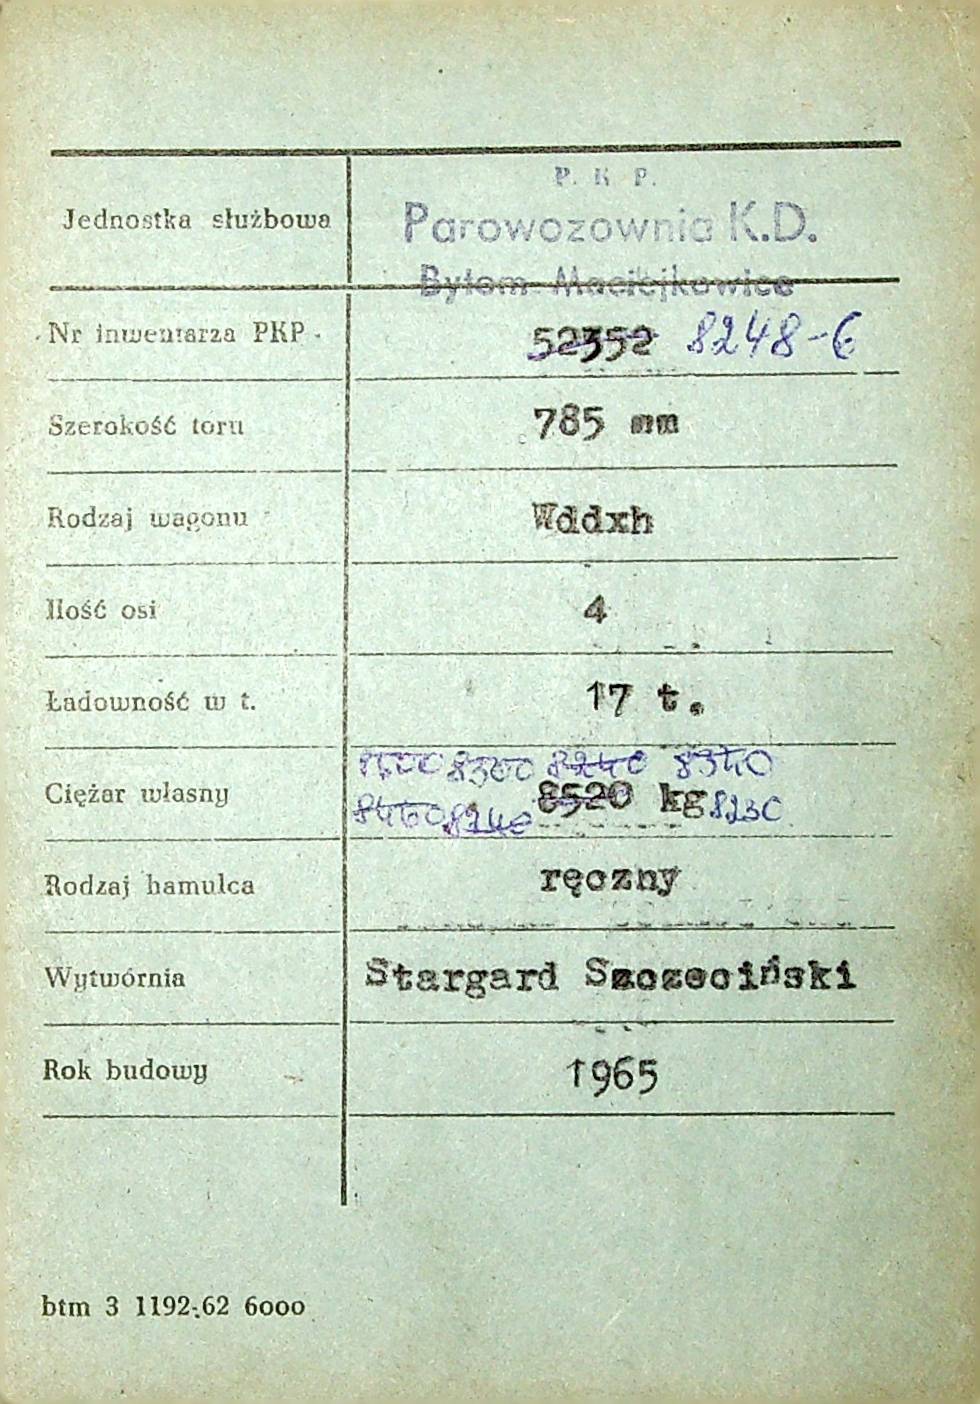 P. K P.
Jednostka służbowa Parowozownia K.D.
Bytom Maciejkowice
Nr inwentarza PKP 52352 8248-6
Szerokość toru 785 mm
Rodzaj wagonu Wddxh
Ilość osi 4
Ładowność w t. 17 t.
8300 8240 8340
Ciężar własny 8460 8240 8520 kg 8230
Rodzaj hamulca ręczny
Wytwórnia Stargard Szczeciński
Rok budowy 1965
btm 3 1192-62 6000